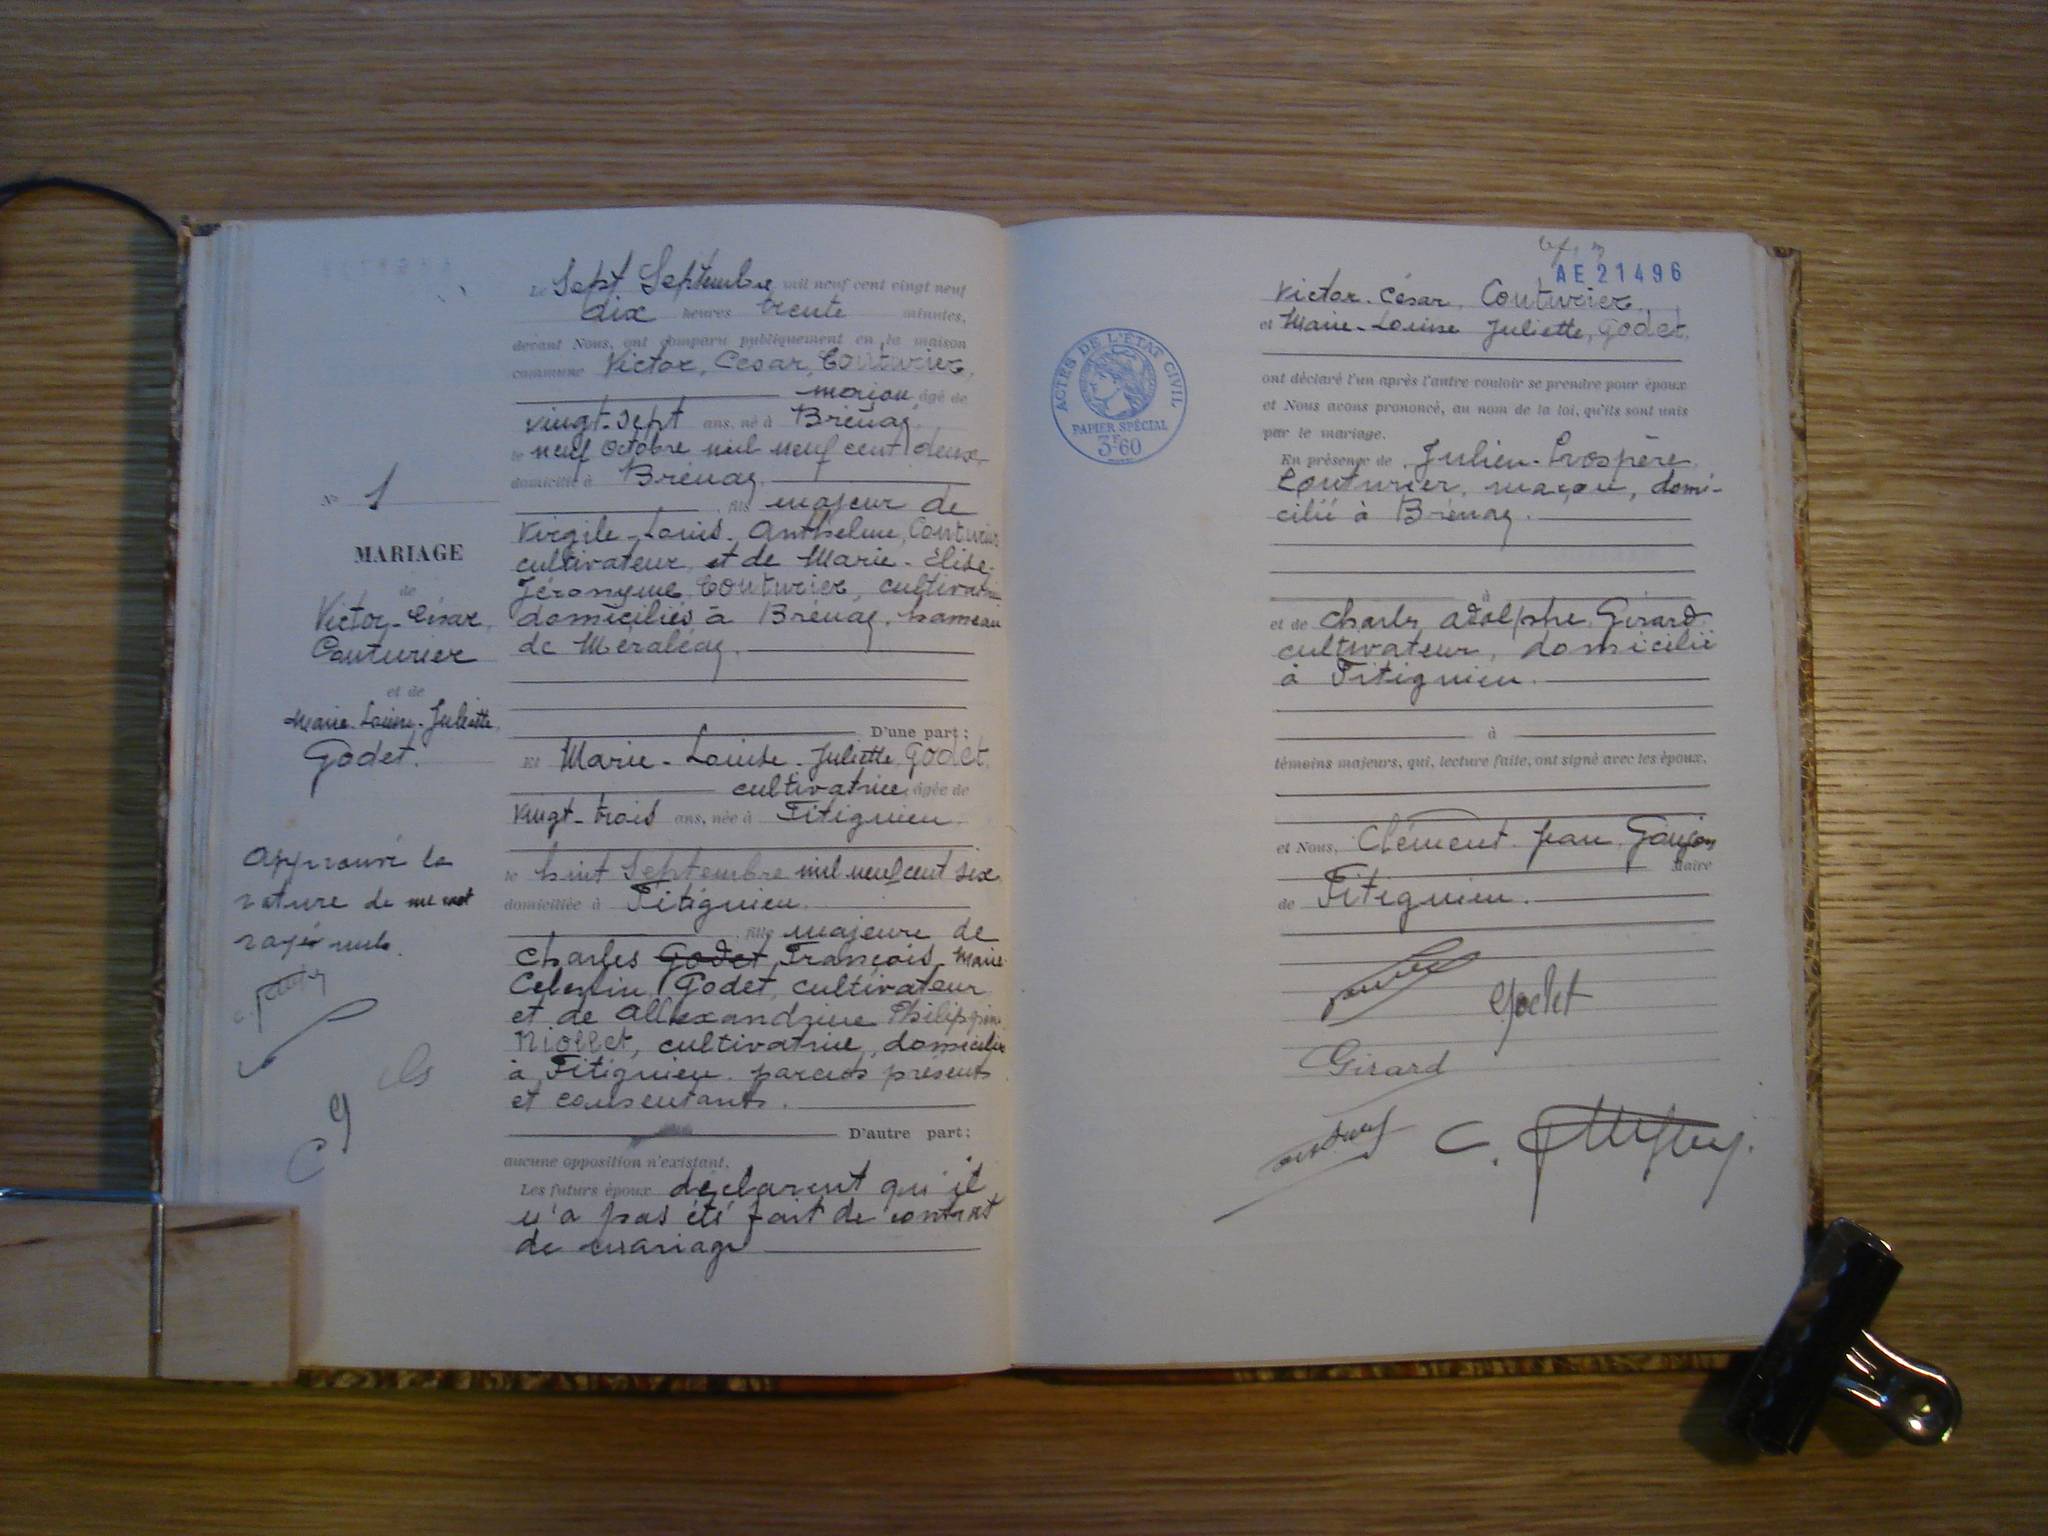 Le Sept Septembre mil neuf cent vingt neuf
dix heures trente minutes,
devant Nous, ont comparu publiquement en la maison
commune Victor, César, Couturier,
maçon, âgé de
vingt-sept ans, né à Brénaz
le neuf octobre mil neuf cent deux
domicilié à Brénaz.
fils majeur de
Virgile-Louis-Anthelme, Couturier
cultivateur et de Marie-Elise-
Jéronyme Couturier, cultivatrice
domiciliés à Brénaz, hameau
de Méraléaz.
D'une part;
Et Marie-Louise-Juliette, Godet,
cultivatrice, âgée de
vingt-trois ans, née à Fitignieu
le huit Septembre mil neuf cent six
domiciliée à Fitignieu.
fille majeure de
Charles Godet François Marie
Celestin Godet, cultivateur
et de Allexandrine
Niollet, cultivatrice, domiciliés
à Fitignieu. parents présents
et consentants.
D'autre part;
aucune opposition n'existant.
Les futurs époux déclarent qu'il
n'a pas été fait de contrat
de mariage
N° 1
MARIAGE
de
Victor-César,
Couturier
et de
Marie-Louise-Juliette,
Godet.
Approuvé la
rature de un mot
rayé nul.
AE 21496
Victor-César, Couturier,
et Marie-Louise Juliette, Godet,
ont déclaré l'un après l'autre vouloir se prendre pour époux
et Nous avons prononcé, au nom de la loi, qu'ils sont unis
par le mariage.
En présence de Julien-Prospère
Couturier, maçon, domi-
cilié à Brénaz.
à
et de Charles Adolphe Girard
cultivateur, domicilié
à Fitignieu.
à
témoins majeurs, qui, lecture faite, ont signé avec les époux,
et Nous, Clément Jean Goujon
Maire
de Fitignieu.
Godet
Girard
ACTES DE L'ÉTAT CIVIL
PAPIER SPÉCIAL
3F60